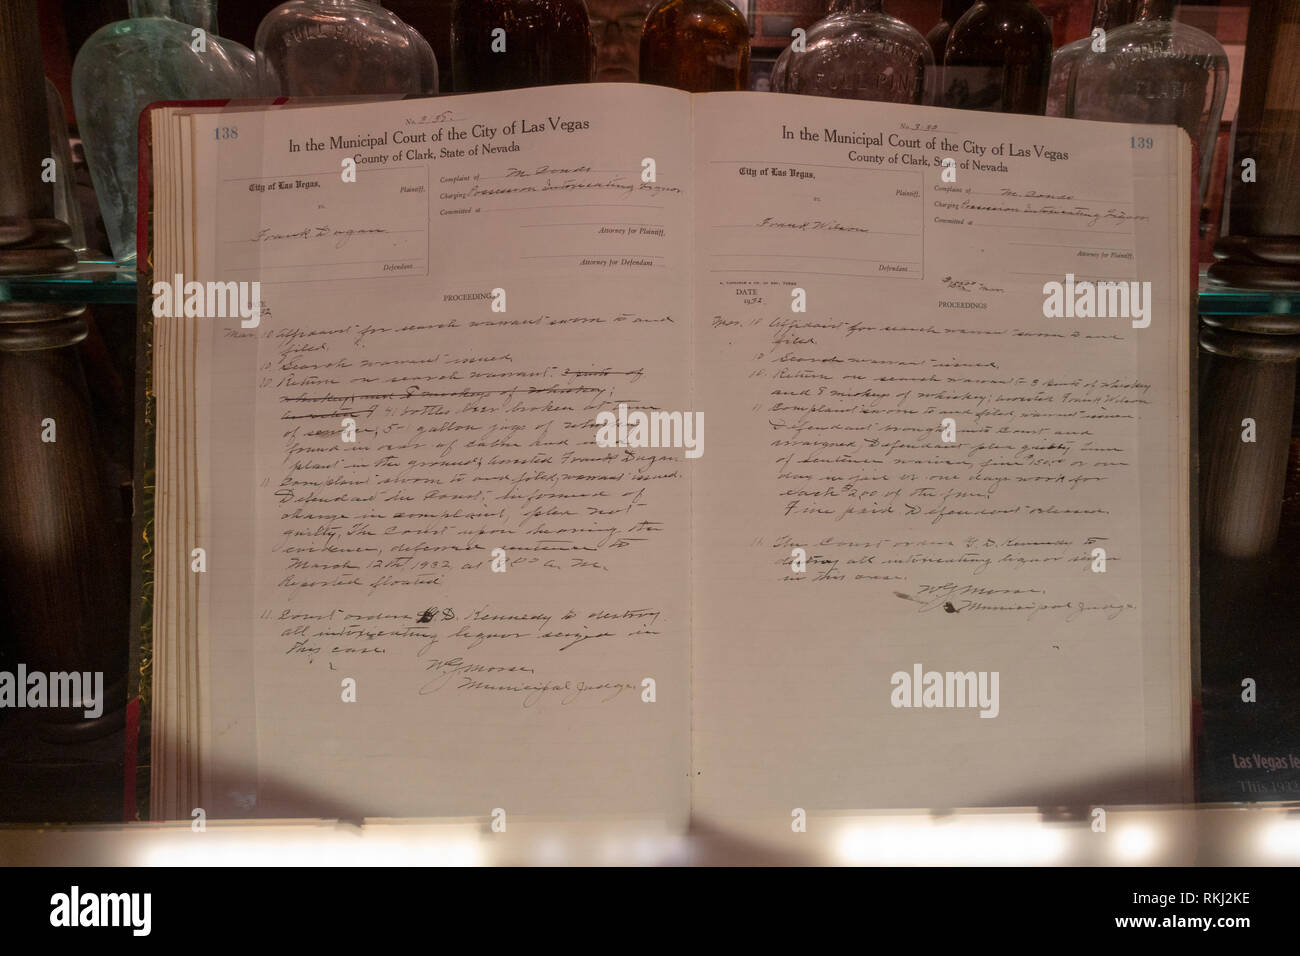 FULL PINT
FULL PINT
WARRANTED
FLASK
138
No. 3135.
In the Municipal Court of the City of Las Vegas
County of Clark, State of Nevada
City of Las Vegas,
Plaintiff,
vs.
Frank Dugan
Defendant
Complaint of M. Donds
Charging Possession Intoxicating Liquor
Committed at
Attorney for Plaintiff,
Attorney for Defendant
DATE
PROCEEDINGS
1932
Mar. 10 Affidavit for search warrant sworn to and
filed.
10. Search warrant issued.
10 Return on search warrant 3 pints of
whiskey, and 8 mickeys of whiskey;
41 bottles beer broken at time
of service; 5-1 gallon jugs of whiskey
found in rear of cabin and in a
plant in the ground; arrested Frank Dugan.
11 Complaint sworn to and filed, warrant issued.
Defendant in Court; informed of
change in complaint, plea not
guilty, The Court upon hearing the
evidence, deferred sentence to
March 12th, 1932 at A. M.
Reported floated
11. Court orders G. D. Kennedy to destroy
all intoxicating liquor seized in
this case.
W G Morse.
Municipal Judge.
139
In the Municipal Court of the City of Las Vegas
County of Clark, State of Nevada
City of Las Vegas,
Plaintiff,
vs.
Frank Wilson
Defendant
Complaint of M. Donds
Charging Possession Intoxicating Liquor
Committed at
Attorney for Plaintiff,
$150.00
DATE
PROCEEDINGS
1932
Mar. 10 Affidavit for search warrant sworn to and
filed.
10 Search warrant issued.
10. Return on search warrant 3 pints of whiskey
and 8 mickeys of whiskey; arrested Frank Wilson
11 Complaint sworn to and filed, warrant issued
Defendant brought into Court and
arraigned Defendant plea guilty time
of sentence waived, fine $150.00 or one
day in jail or one days work for
each $2.00 of the fine.
Fine paid Defendant released.
11. The Court orders G. D. Kennedy to
destroy all intoxicating liquor seized
in this case.
W G Morse.
Municipal Judge.
Las Vegas le
This 1932
a alamy stock photo
alamy
Image ID: RKJ2KE
www.alamy.com